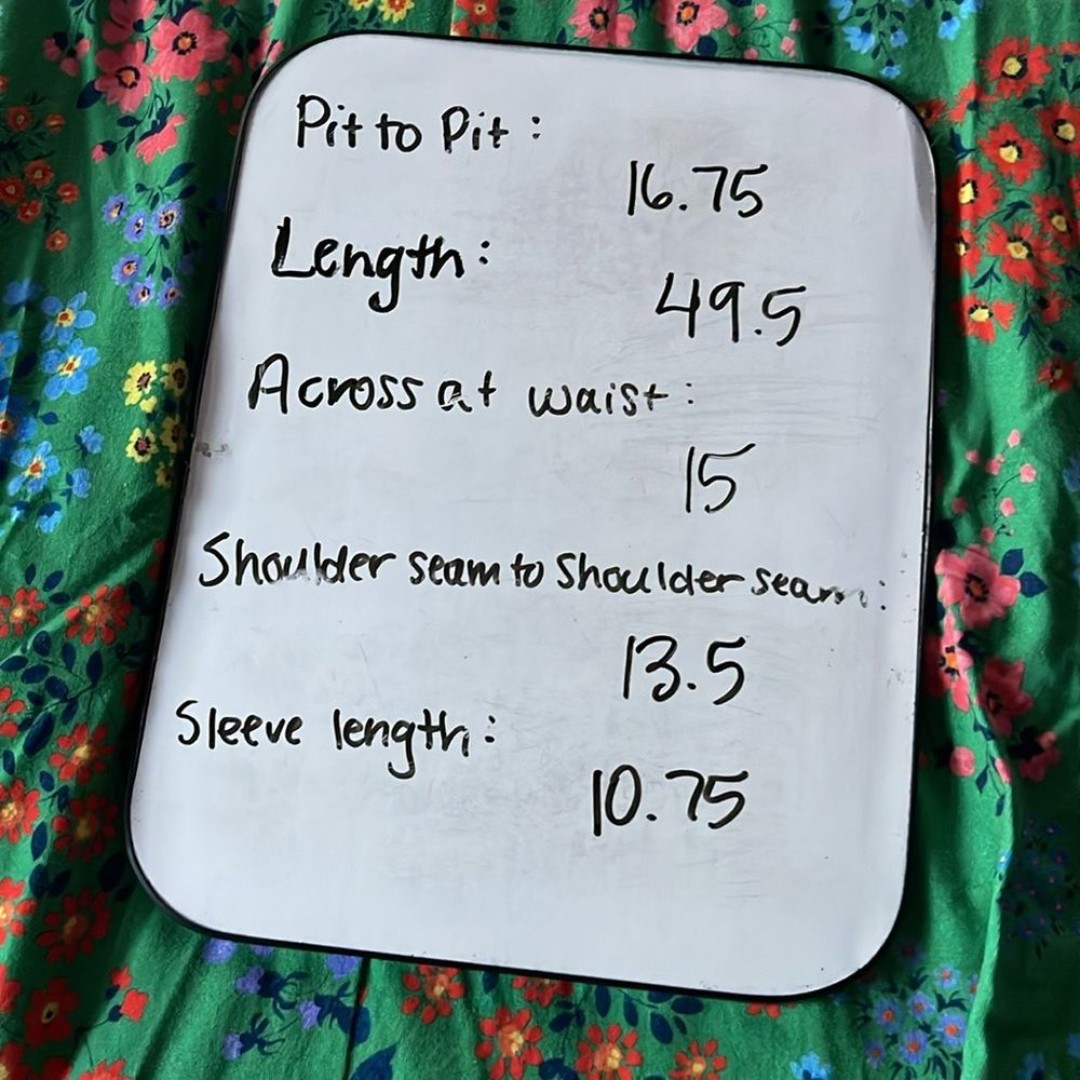 Pit to Pit:
16.75
Length:
49.5
Across at waist:
15
Shoulder seam to Shoulder seam:
13.5
Sleeve length:
10.75